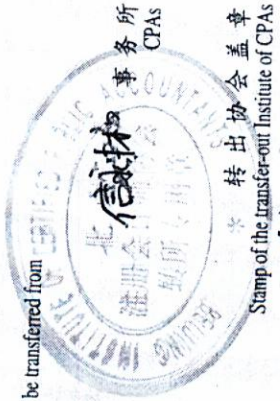 be transferred from
事务所
CPAs
转出协会盖章
Stamp of the transfer-out Institute of CPAs
BEIJING INSTITUTE OF CERTIFIED PUBLIC ACCOUNTANTS